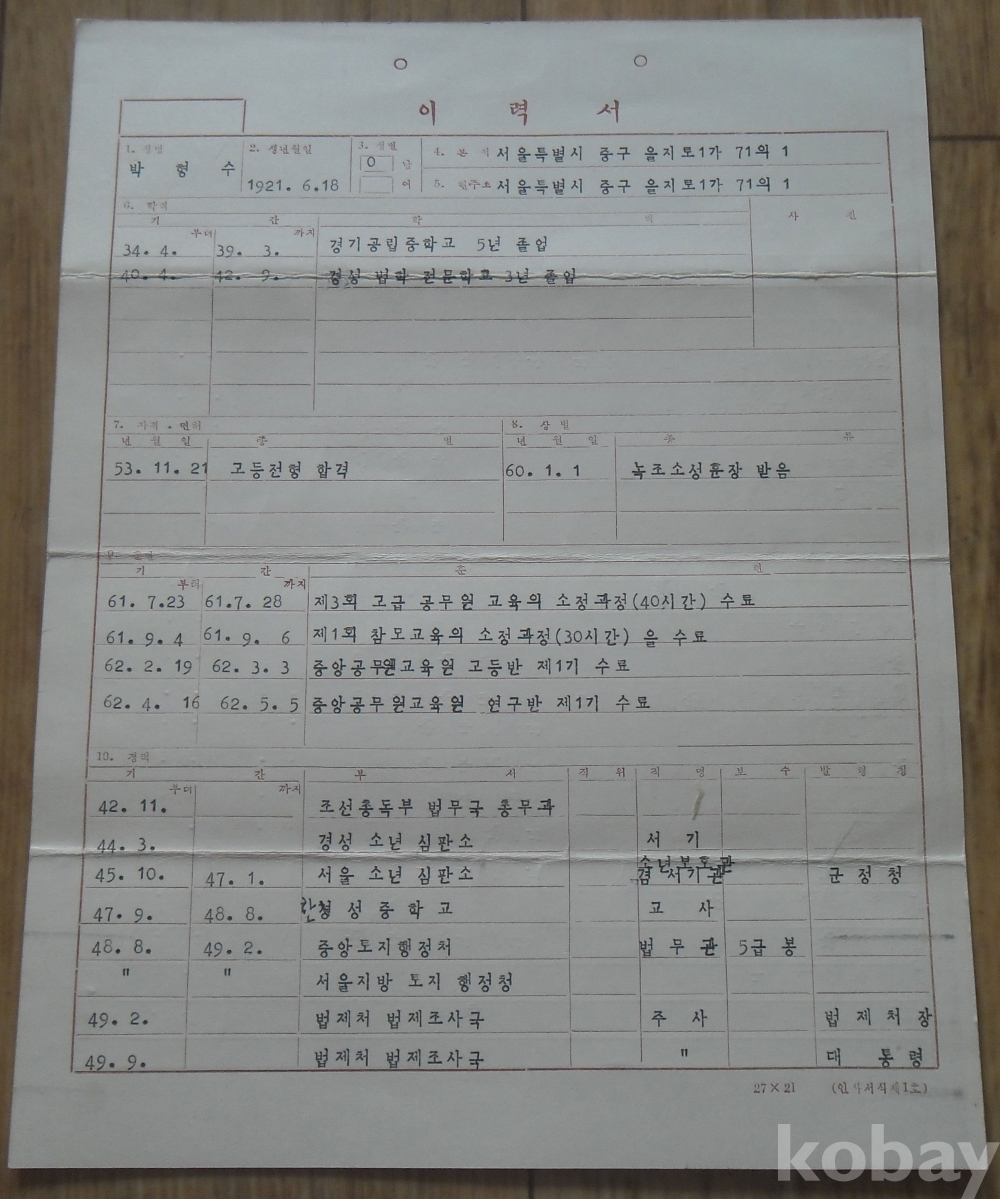 이 력 서
1. 성명 2. 생년월일 3. 성별 4. 본 적 서울특별시 중구 을지로1가 71의 1
박 형 수 1921. 6.18 0 남
여 5. 현주소 서울특별시 중구 을지로1가 71의 1
6. 학력
기 간 학 력 사 진
부터 까지
34. 4. 39. 3. 경기공립중학교 5년 졸업
40. 4. 42. 9. 경성 법학 전문학교 3년 졸업
7. 자격 . 면허 8. 상 벌
년 월 일 종 별 년 월 일 종 류
53. 11. 21 고등전형 합격 60. 1. 1 녹조소성훈장 받음
9. 훈련
기 간 훈 련
부터 까지
61. 7.23 61.7. 28 제3회 고급 공무원 교육의 소정과정(40시간) 수료
61. 9. 4 61. 9. 6 제1회 참모교육의 소정과정(30시간) 을 수료
62. 2. 19 62. 3. 3 중앙공무원교육원 고등반 제1기 수료
62. 4. 16 62. 5. 5 중앙공무원교육원 연구반 제1기 수료
10. 경력
기 간 부 서 직 위 직 명 보 수 발 령 청
부터 까지
42. 11. 조선총독부 법무국 총무과
44. 3. 경성 소년 심판소 서 기
소년보호관
45. 10. 47. 1. 서울 소년 심판소 겸 서기관 군 정 청
47. 9. 48. 8. 한성중학교 교 사
48. 8. 49. 2. 중앙토지행정처 법 무 관 5급 봉
" " 서울지방 토지 행정청
49. 2. 법제처 법제조사국 주 사 법 제 처 장
49. 9. 법제처 법제조사국 " 대 통 령
27×21 (인사서식제1호)
kobay